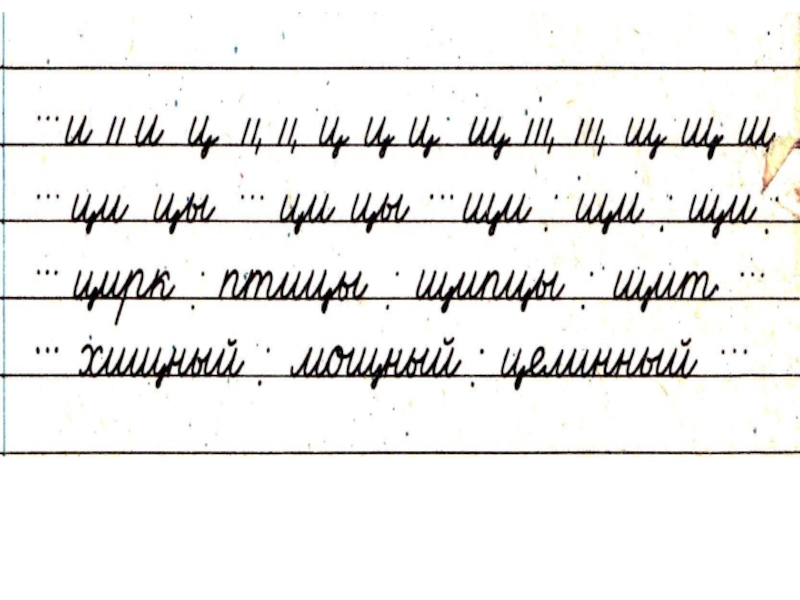 … и и и ц ц ц ц ц ц щ щ щ щ щ щ
… ци цы … ци цы … щи . щи . щи .
… цирк . птицы . щипцы . щит …
… хищный . мощный . целинный …